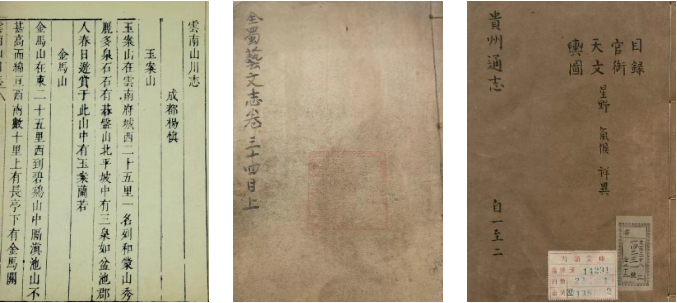 雲南山川志
成都楊慎
玉案山
玉案山在雲南府城西二十五里一名列和蒙山秀
麗多泉石石有棊盤山北平坡中有三泉如盆池郡
人春日遊賞于此山中有玉案蘭若
金馬山
金馬山在東二十五里西到碧鷄山中隔滇池山不
甚高而綿亘西南數十里上有長亭下有金馬關
全蜀藝文志卷三十四目上
目錄
官銜
天文 星野 氣候 祥異
輿圖
自一至二
貴州通志
11231
138 2